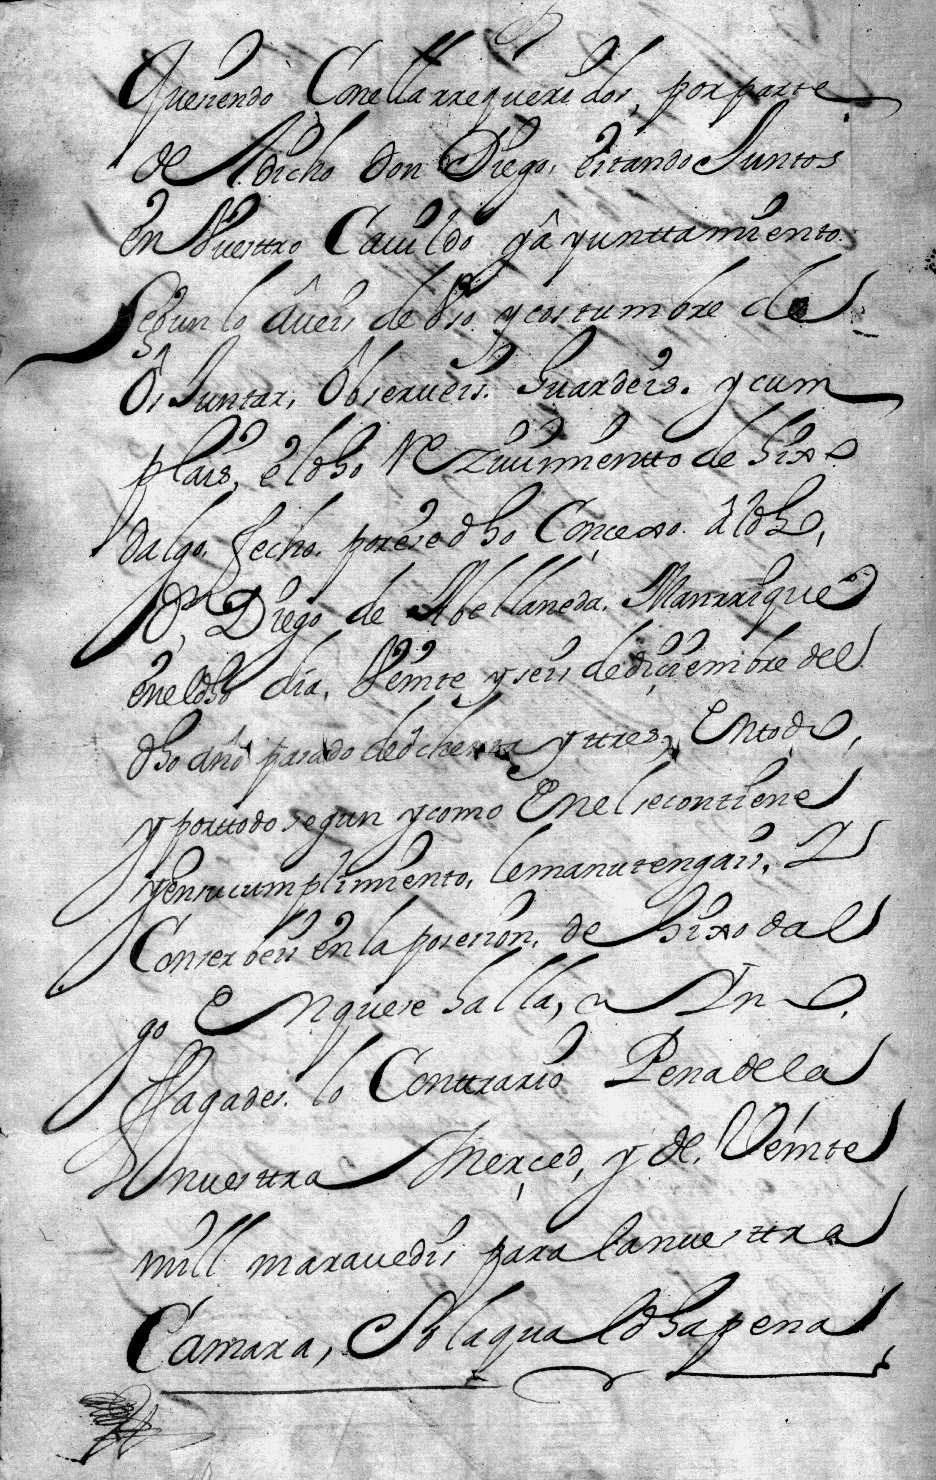 Queriendo Con ella rrequeridos, por parte
del dicho don Diego, estando Juntos
en Vuesttro Cavildo y âyunttamiento.
Segun lo âveis de Vso y costumbre de
ôs Juntar, Observeis. Guardeis. y cum
plais, el dho Rezivimientto de hixo
dalgo. fecho. por ese dho Conçexo. âl dho,
Dn Diego de Abellaneda. Manrrique
en el dho dia, Veinte y seis de diçiembre del
dho año pasado de ochenta y ttres, En todo,
y porttodo segun y como En el se contiene
y en su cumplimiento, le manutengais, Y
Conserbeis en la posesion, de hixo dal
go En que se halla, 
ffagades. lo Conttrario Pena de la
nuesttra Merçed, y de, Veinte
mill maravedis para la nuesttra
Camara, So la qual dha pena